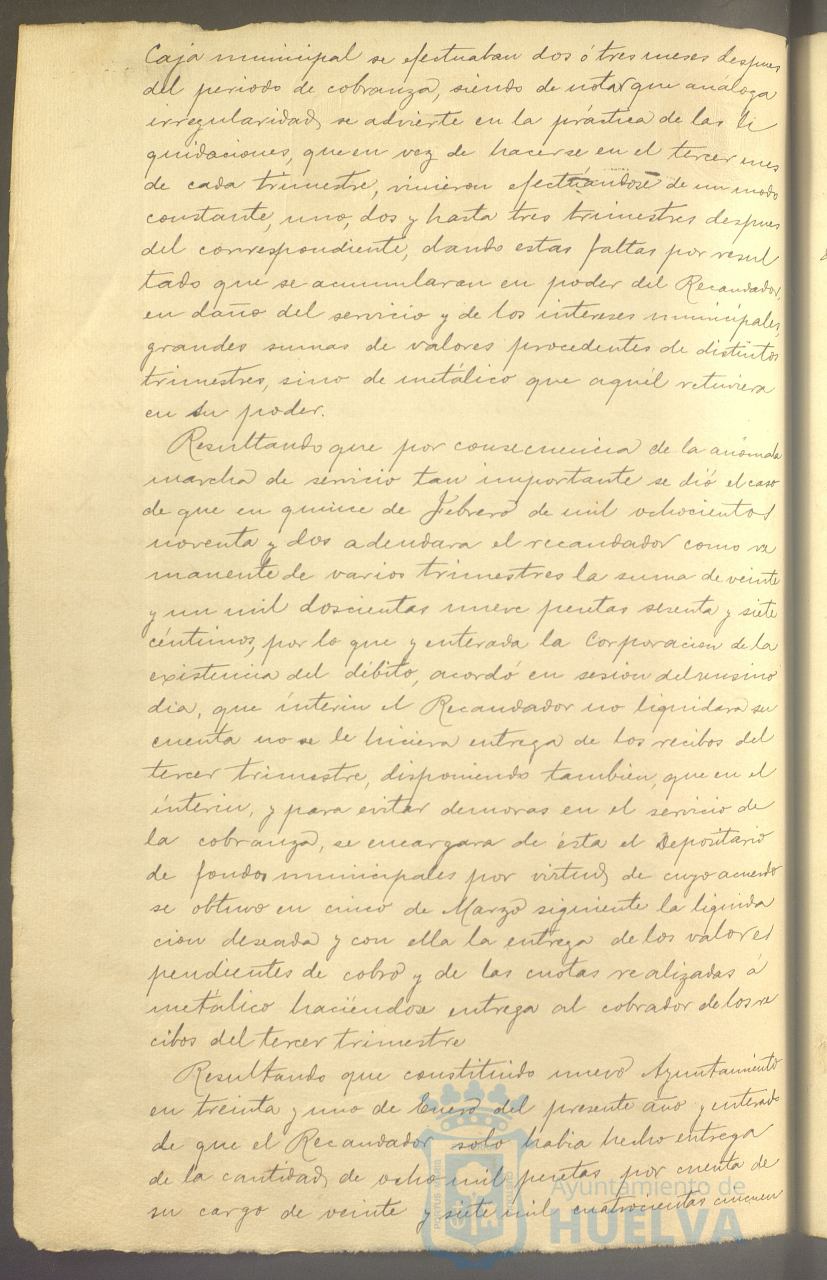 Caja municipal se efectuaban dos ó tres meses despues
del periodo de cobranza, siendo de notar que análoga
irregularidad, se advierte en la práctica de las li
quidaciones, que en vez de hacerse en el tercer mes
de cada trimestre, vinieron efectuandose de un modo
constante, uno, dos y hasta tres trimestres despues
del correspondiente, dando estas faltas por resul
tado que se acumularan en poder del Recaudador,
en daño del servicio y de los intereses municipales,
grandes sumas de valores procedentes de distintos
trimestres, sino de metálico que aquél retuviera
en su poder.
Resultando que por consecuencia de la anómala
marcha de servicio tan importante se dió el caso
de que en quince de Febrero de mil ochocientos
noventa y dos adeudara el recaudador como re
manente de varios trimestres la suma de veinte
y un mil doscientas nueve pesetas sesenta y siete
céntimos, por lo que y enterada la Corporacion de la
existencia del débito, acordó en sesion del mismo
dia, que ínterin el Recaudador no liquidara su
cuenta no se le hiciera entrega de los recibos del
tercer trimestre, disponiendo tambien, que en el
ínterin, y para evitar demoras en el servicio de
la cobranza, se encargara de ésta el Depositario
de fondos municipales por virtud, de cuyo acuerdo
se obtuvo en cinco de Marzo siguiente la liquida
cion deseada y con ella la entrega de los valores
pendientes de cobro y de las cuotas realizadas á
metálico haciéndose entrega al cobrador de los re
cibos del tercer trimestre
Resultando que constituido nuevo Ayuntamiento
en treinta y uno de Enero del presente año y enterado
de que el Recaudador solo habia hecho entrega
de la cantidad, de ocho mil pesetas por cuenta de
su cargo de veinte y siete mil cuatrocientas cincuen
Ayuntamiento de
HUELVA